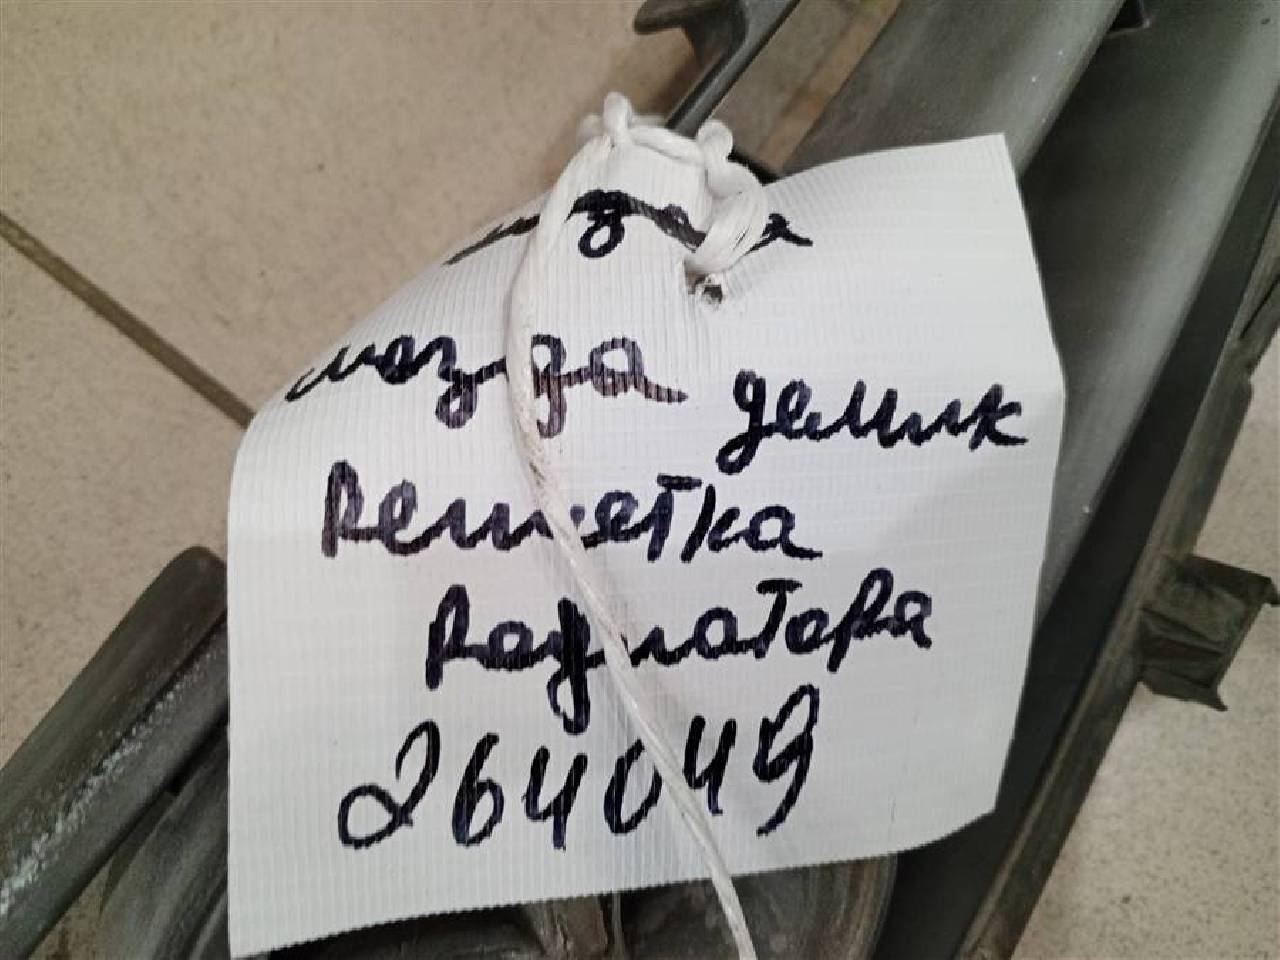 мазда демик
Решетка
Радиатора
264049